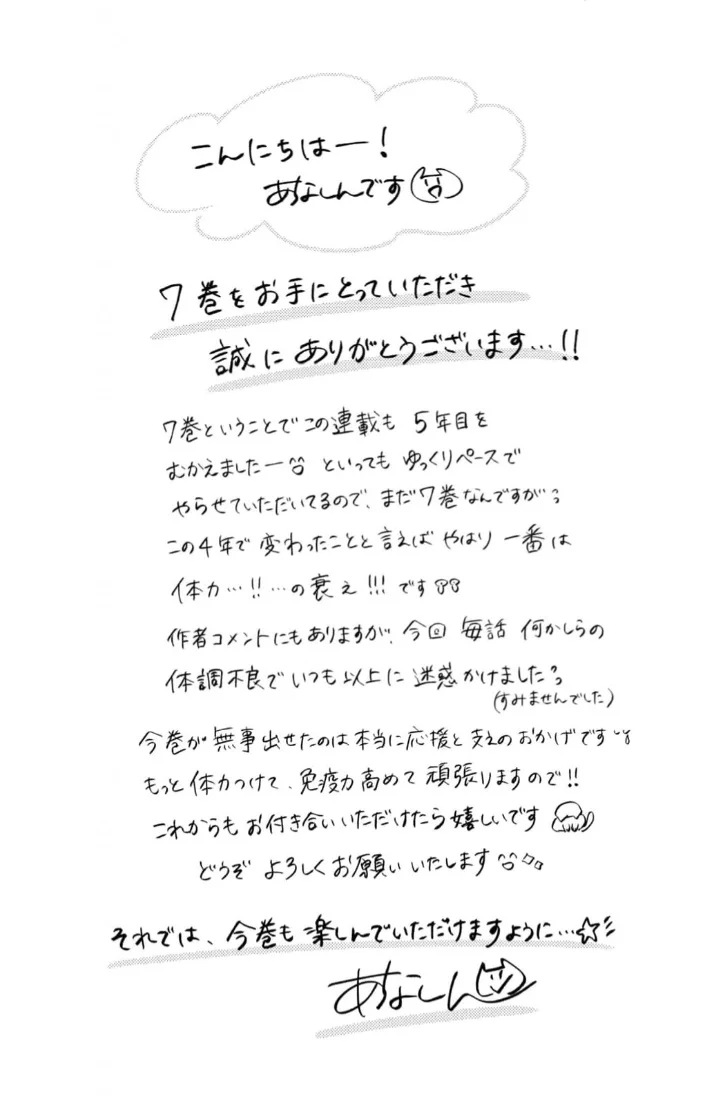 こんにちはー!
あなしんです
7巻をお手にとっていただき
誠にありがとうございます…!!
7巻ということでこの連載も 5年目を
むかえましたー といっても ゆっくりペースで
やらせていただいてるので、まだ7巻なんですが
この4年で 変わったことと言えば やはり 一番は
体力…!!…の衰え!!! です
作者コメントにもありますが、今回 毎話 何かしらの
体調不良で いつも以上に 迷惑かけました
(すみませんでした)
今巻が 無事出せたのは 本当に応援と支えのおかげです
もっと 体力つけて、免疫力 高めて 頑張りますので!!
これからも お付き合いいただけたら 嬉しいです
どうぞ よろしくお願いいたします
それでは、今巻も 楽しんでいただけますように…☆
あなしん